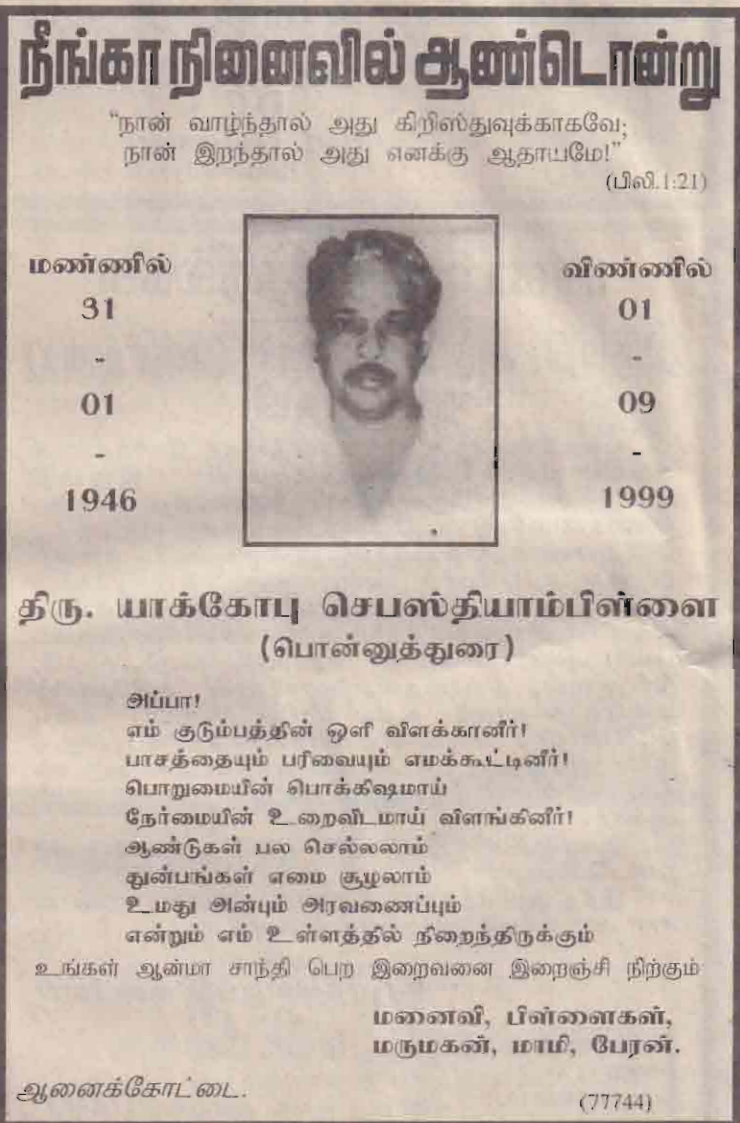 நீங்கா நினைவில் ஆண்டொன்று
"நான் வாழ்ந்தால் அது கிறிஸ்துவுக்காகவே;
நான் இறந்தால் அது எனக்கு ஆதாயமே!"
(பிலி.1:21)
மண்ணில்
31
-
01
-
1946
விண்ணில்
01
-
09
-
1999
திரு. யாக்கோபு செபஸ்தியாம்பிள்ளை
(பொன்னுத்துரை)
அப்பா!
எம் குடும்பத்தின் ஒளி விளக்கானீர்!
பாசத்தையும் பரிவையும் எமக்கூட்டினீர்!
பொறுமையின் பொக்கிஷமாய்
நேர்மையின் உறைவிடமாய் விளங்கினீர்!
ஆண்டுகள் பல செல்லலாம்
துன்பங்கள் எமை சூழலாம்
உமது அன்பும் அரவணைப்பும்
என்றும் எம் உள்ளத்தில் நிறைந்திருக்கும்
உங்கள் ஆன்மா சாந்தி பெற இறைவனை இறைஞ்சி நிற்கும்
மனைவி, பிள்ளைகள்,
மருமகன், மாமி, பேரன்.
ஆனைக்கோட்டை.
(77744)